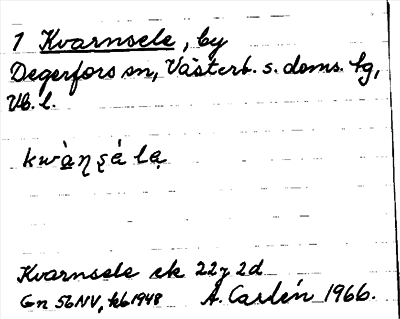 1 Kvarnsele, by
Degerfors sn, Västerb. s. doms. hg,
Vb. l.
kwàɳʂéla
Kvarnsele ek 22j 2d
Gn 56NV, kb 1948 A. Carlén 1966.